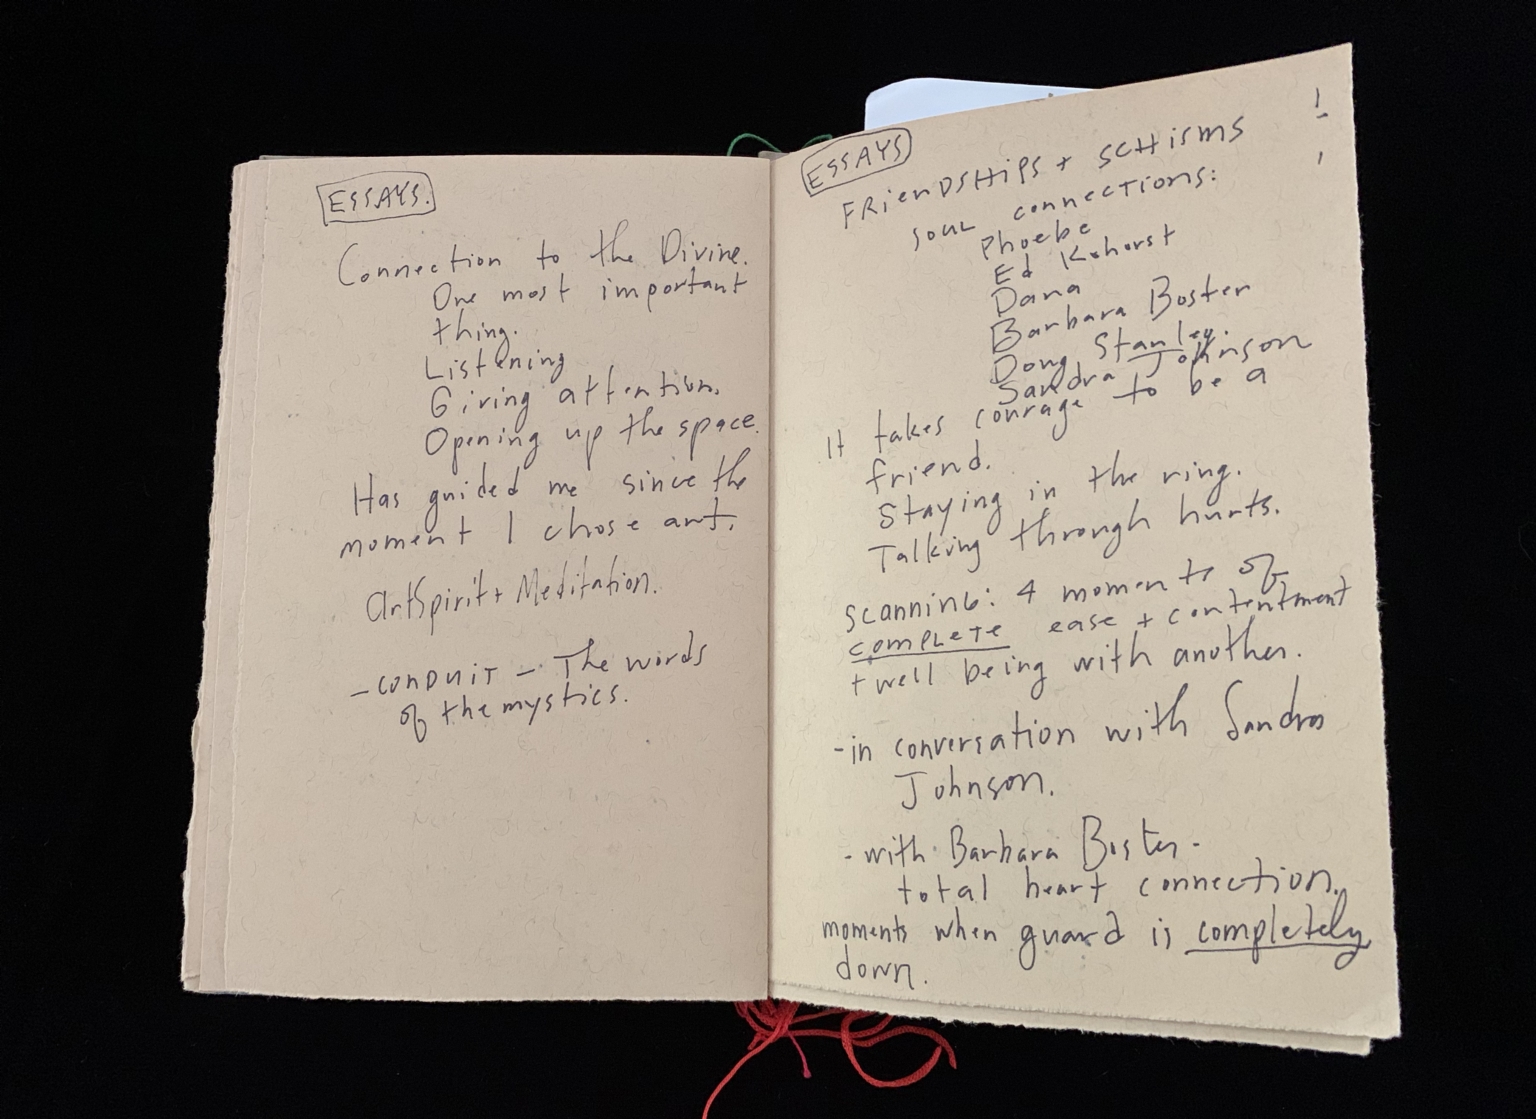 ESSAYS.
Connection to the Divine.
One most important
thing.
Listening
Giving attention.
Opening up the space.
Has guided me since the
moment I chose art.
ArtSpirit + Meditation.
- CONDUIT - The words
of the mystics.
ESSAYS
FRIENDSHIPS + SCHISMS
SOUL CONNECTIONS:
Phoebe
Ed
Dana
Barbara Boster
Doug Stanley.
Sandra Johnson
It takes courage to be a
friend.
Staying in the ring.
Talking through hurts.
SCANNING: 4 moments of
COMPLETE ease + contentment
+ well being with another.
- in conversation with Sandra
Johnson.
- with Barbara Boster -
total heart connection.
moments when guard is completely
down.